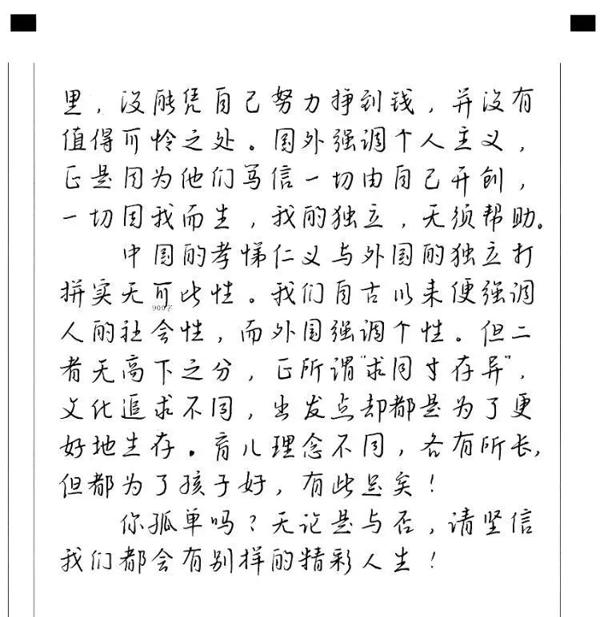 里，没能凭自己努力挣到钱，并没有
值得可怜之处。国外强调个人主义，
正是因为他们笃信一切由自己开创，
一切因我而生，我的独立，无须帮助。
中国的孝悌仁义与外国的独立打
拼实无可比性。我们自古以来便强调
900字
人的社会性，而外国强调个性。但二
者无高下之分，正所谓“求同存异”，
文化追求不同，出发点却都是为了更
好地生存。育儿理念不同，各有所长，
但都为了孩子好，有此足矣！
你孤单吗？无论是与否，请坚信
我们都会有别样的精彩人生！